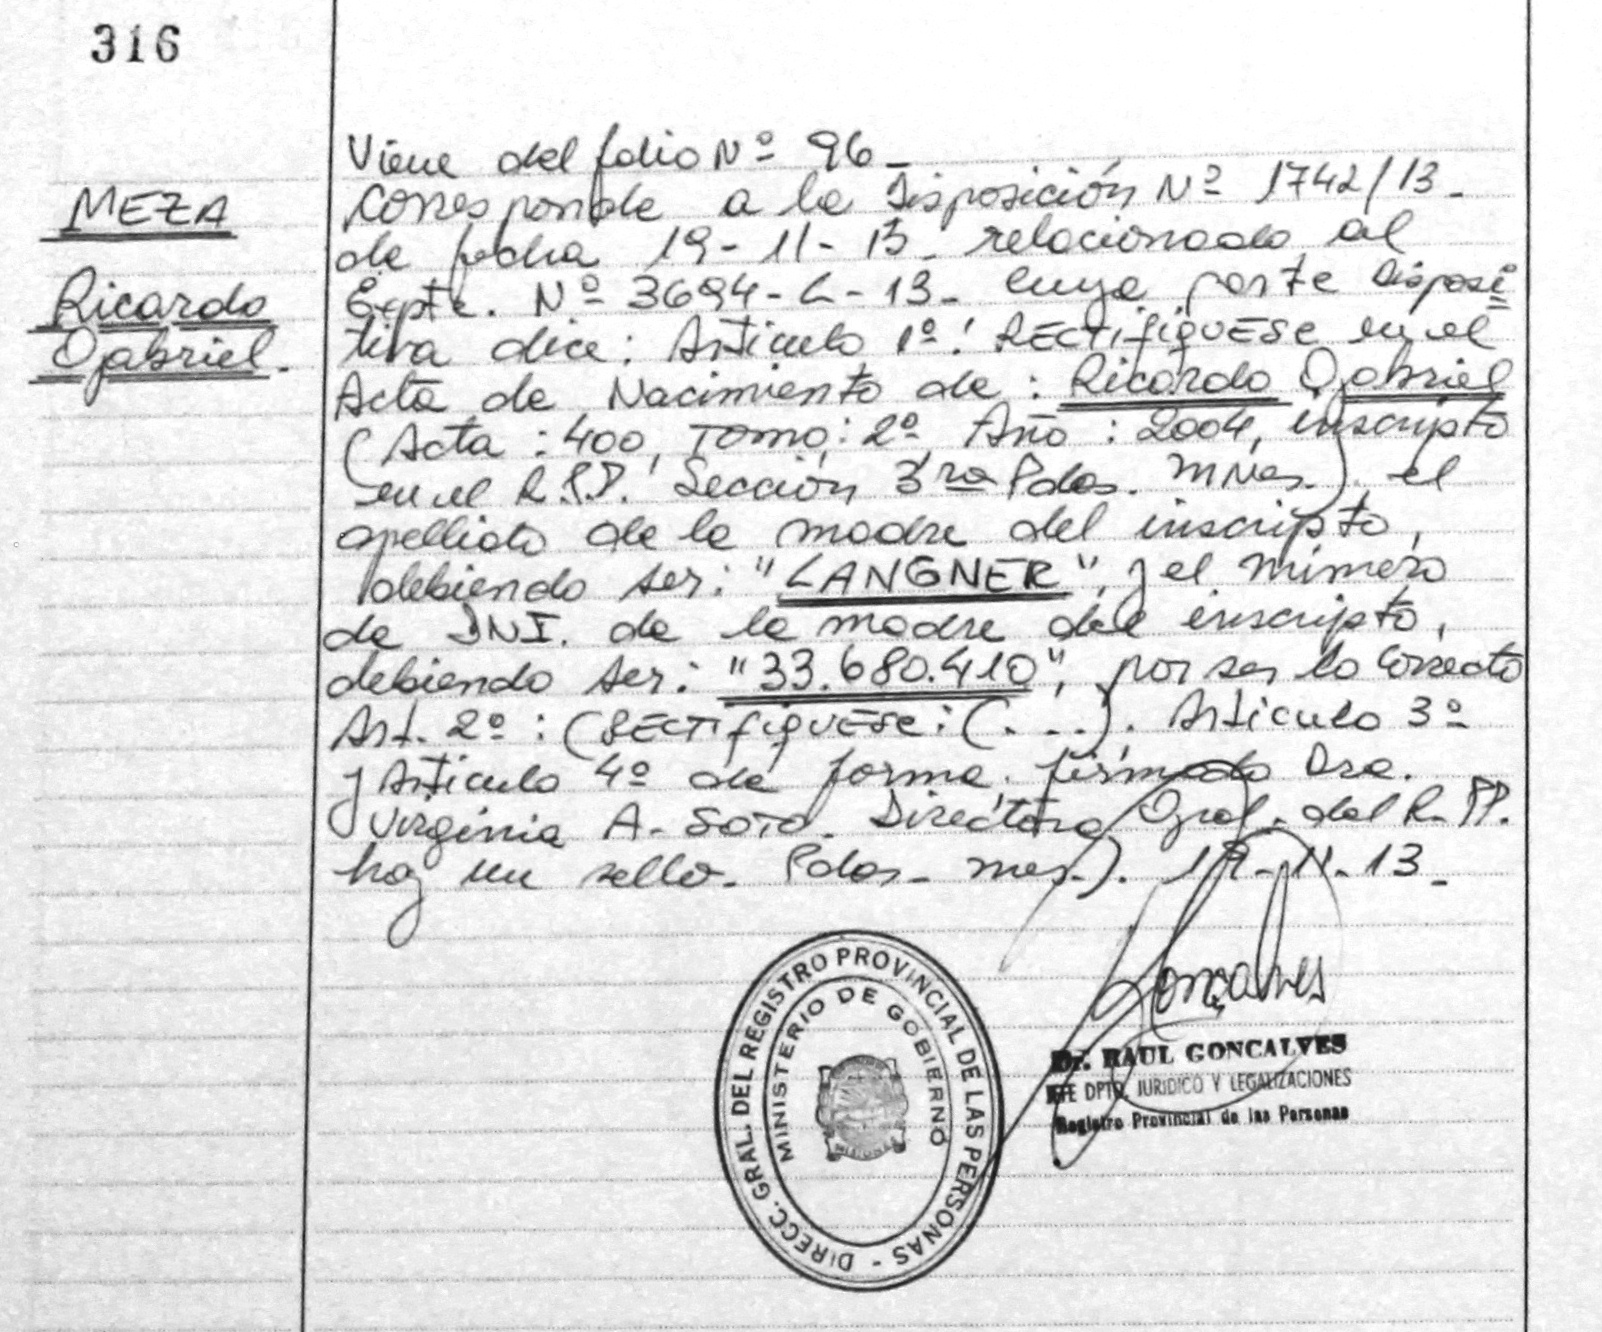 316
MEZA
Ricardo
Gabriel.
Viene del folio Nº 96-
Corresponde a la Disposición Nº 1742/13-
de fecha 19-11-13- relacionado al
Expte. Nº 3694-L-13- Cuya parte disposi=
tiva dice: Articulo 1º: RECTIFIQUESE en el
Acta de Nacimiento de: Ricardo Gabriel
(Acta: 400, Tomo: 2º, Año: 2004, inscripto
en el R.P.P. Sección 3ra Pdas. Mnes.) el
apellido de la madre del inscripto,
debiendo ser: "LANGNER", y el número
de DNI. de la madre del inscripto,
debiendo ser: "33.680.410", por ser lo Correcto
Art. 2º: (RECTIFIQUESE: (...). Articulo 3º
y Articulo 4º de forma. firmado Dra.
Virginia A. Soto. Directora Gral. del R.PP.
hay un sello- Pdas- mes-). 19-11-13-
DIRECC. GRAL. DEL REGISTRO PROVINCIAL DE LAS PERSONAS -
MINISTERIO DE GOBIERNO
MISIONES
Goncalves
Dr. RAUL GONCALVES
JEFE DPTO. JURIDICO Y LEGALIZACIONES
Registro Provincial de las Personas